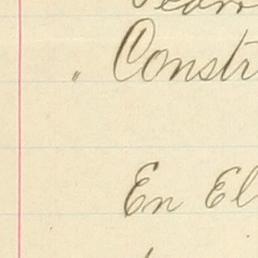 " Constr
En El